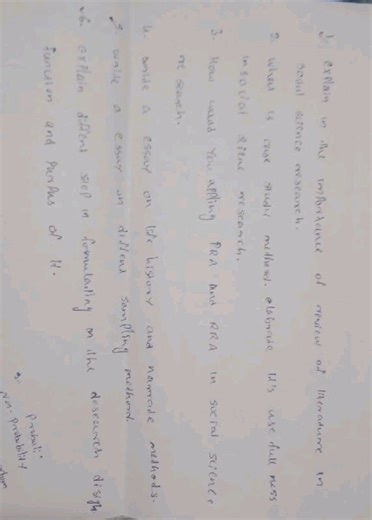 1. explain in the importance of review of literature in
social science research.
2. what is case study method. elaborate it's use full ness
in social science research.
3. How would you applying PRA and RRA in social science
research.
4. write a essay on life history and narrative methods.
5. write a essay on different sampling method.
6. explain different step in formulating on the research design
function and purpos of it.
probabili
non-probability